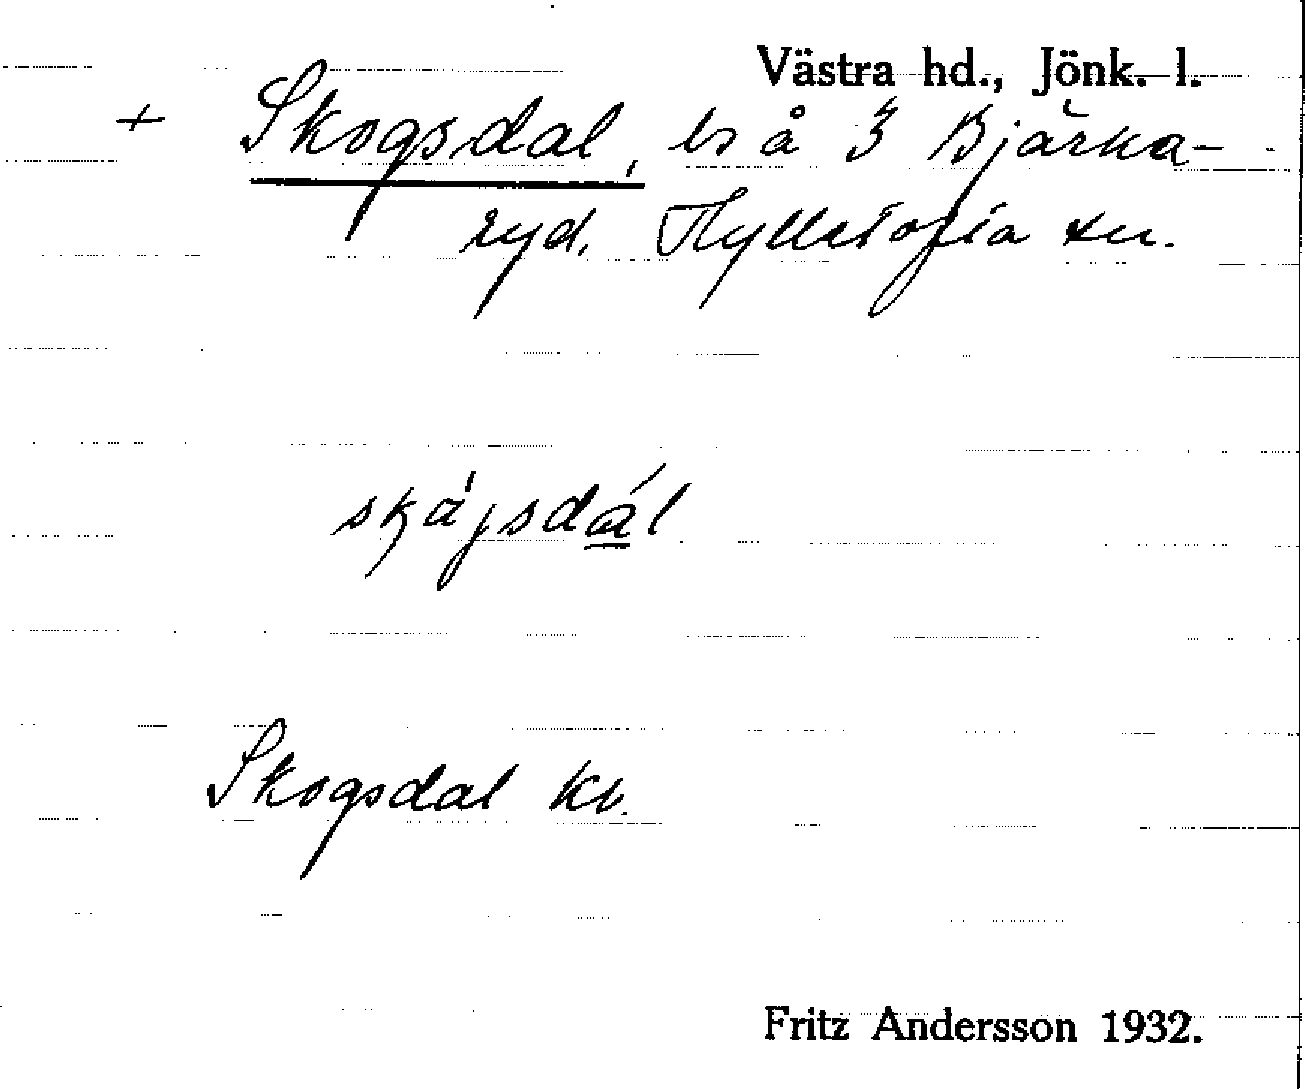 Västra hd., Jönk. l.
+ Skogsdal, ls å 3/4 Bjärka-
ryd. Hylletofta sn.
skógsdál
Skogsdal kv.
Fritz Andersson 1932.